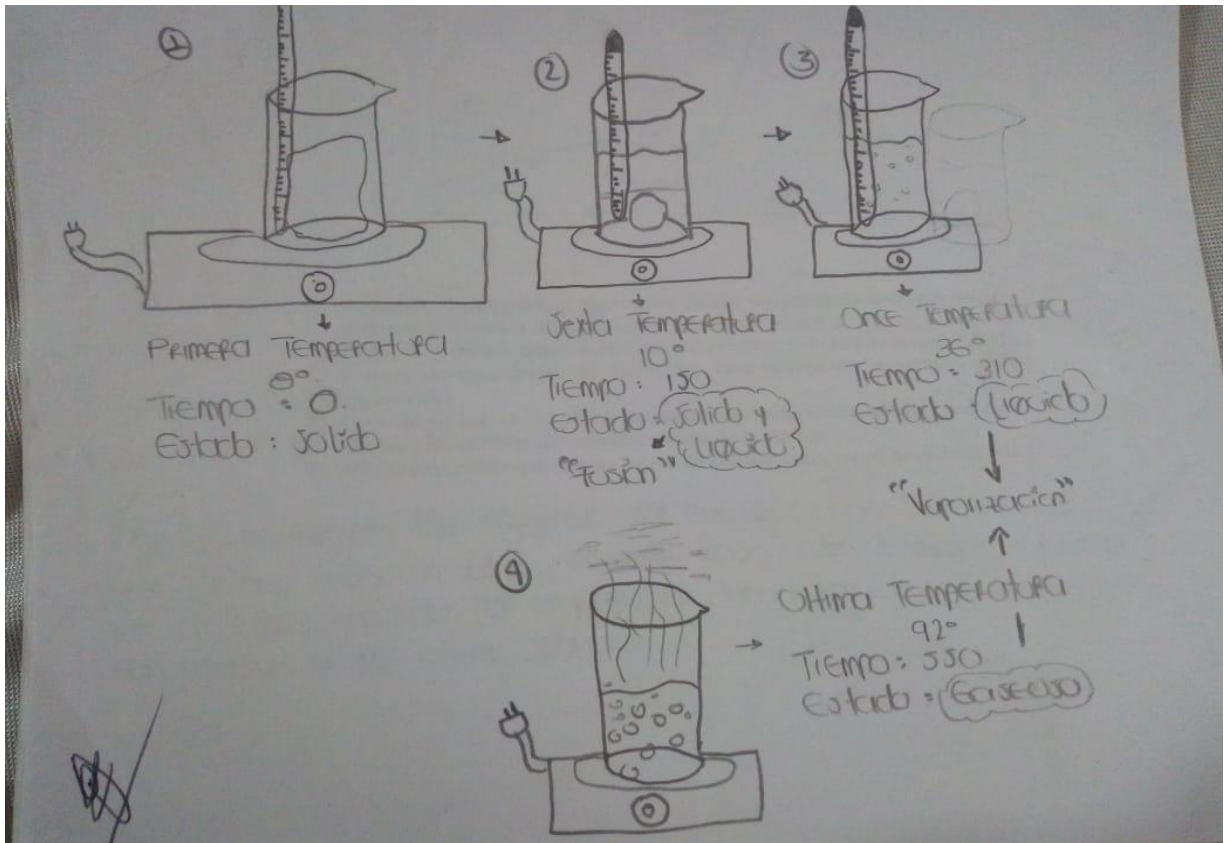 ①
②
③
Primera Temperatura
0°
Tiempo : 0.
Estado : Solido
Sexta Temperatura
10°
Tiempo : 150
Estado : Solido y
Liquido
"Fusión"
Once Temperatura
36°
Tiempo = 310
Estado = Liquido
"Vaporización"
④
Ultima Temperatura
92°
Tiempo = 550
Estado = Gaseoso